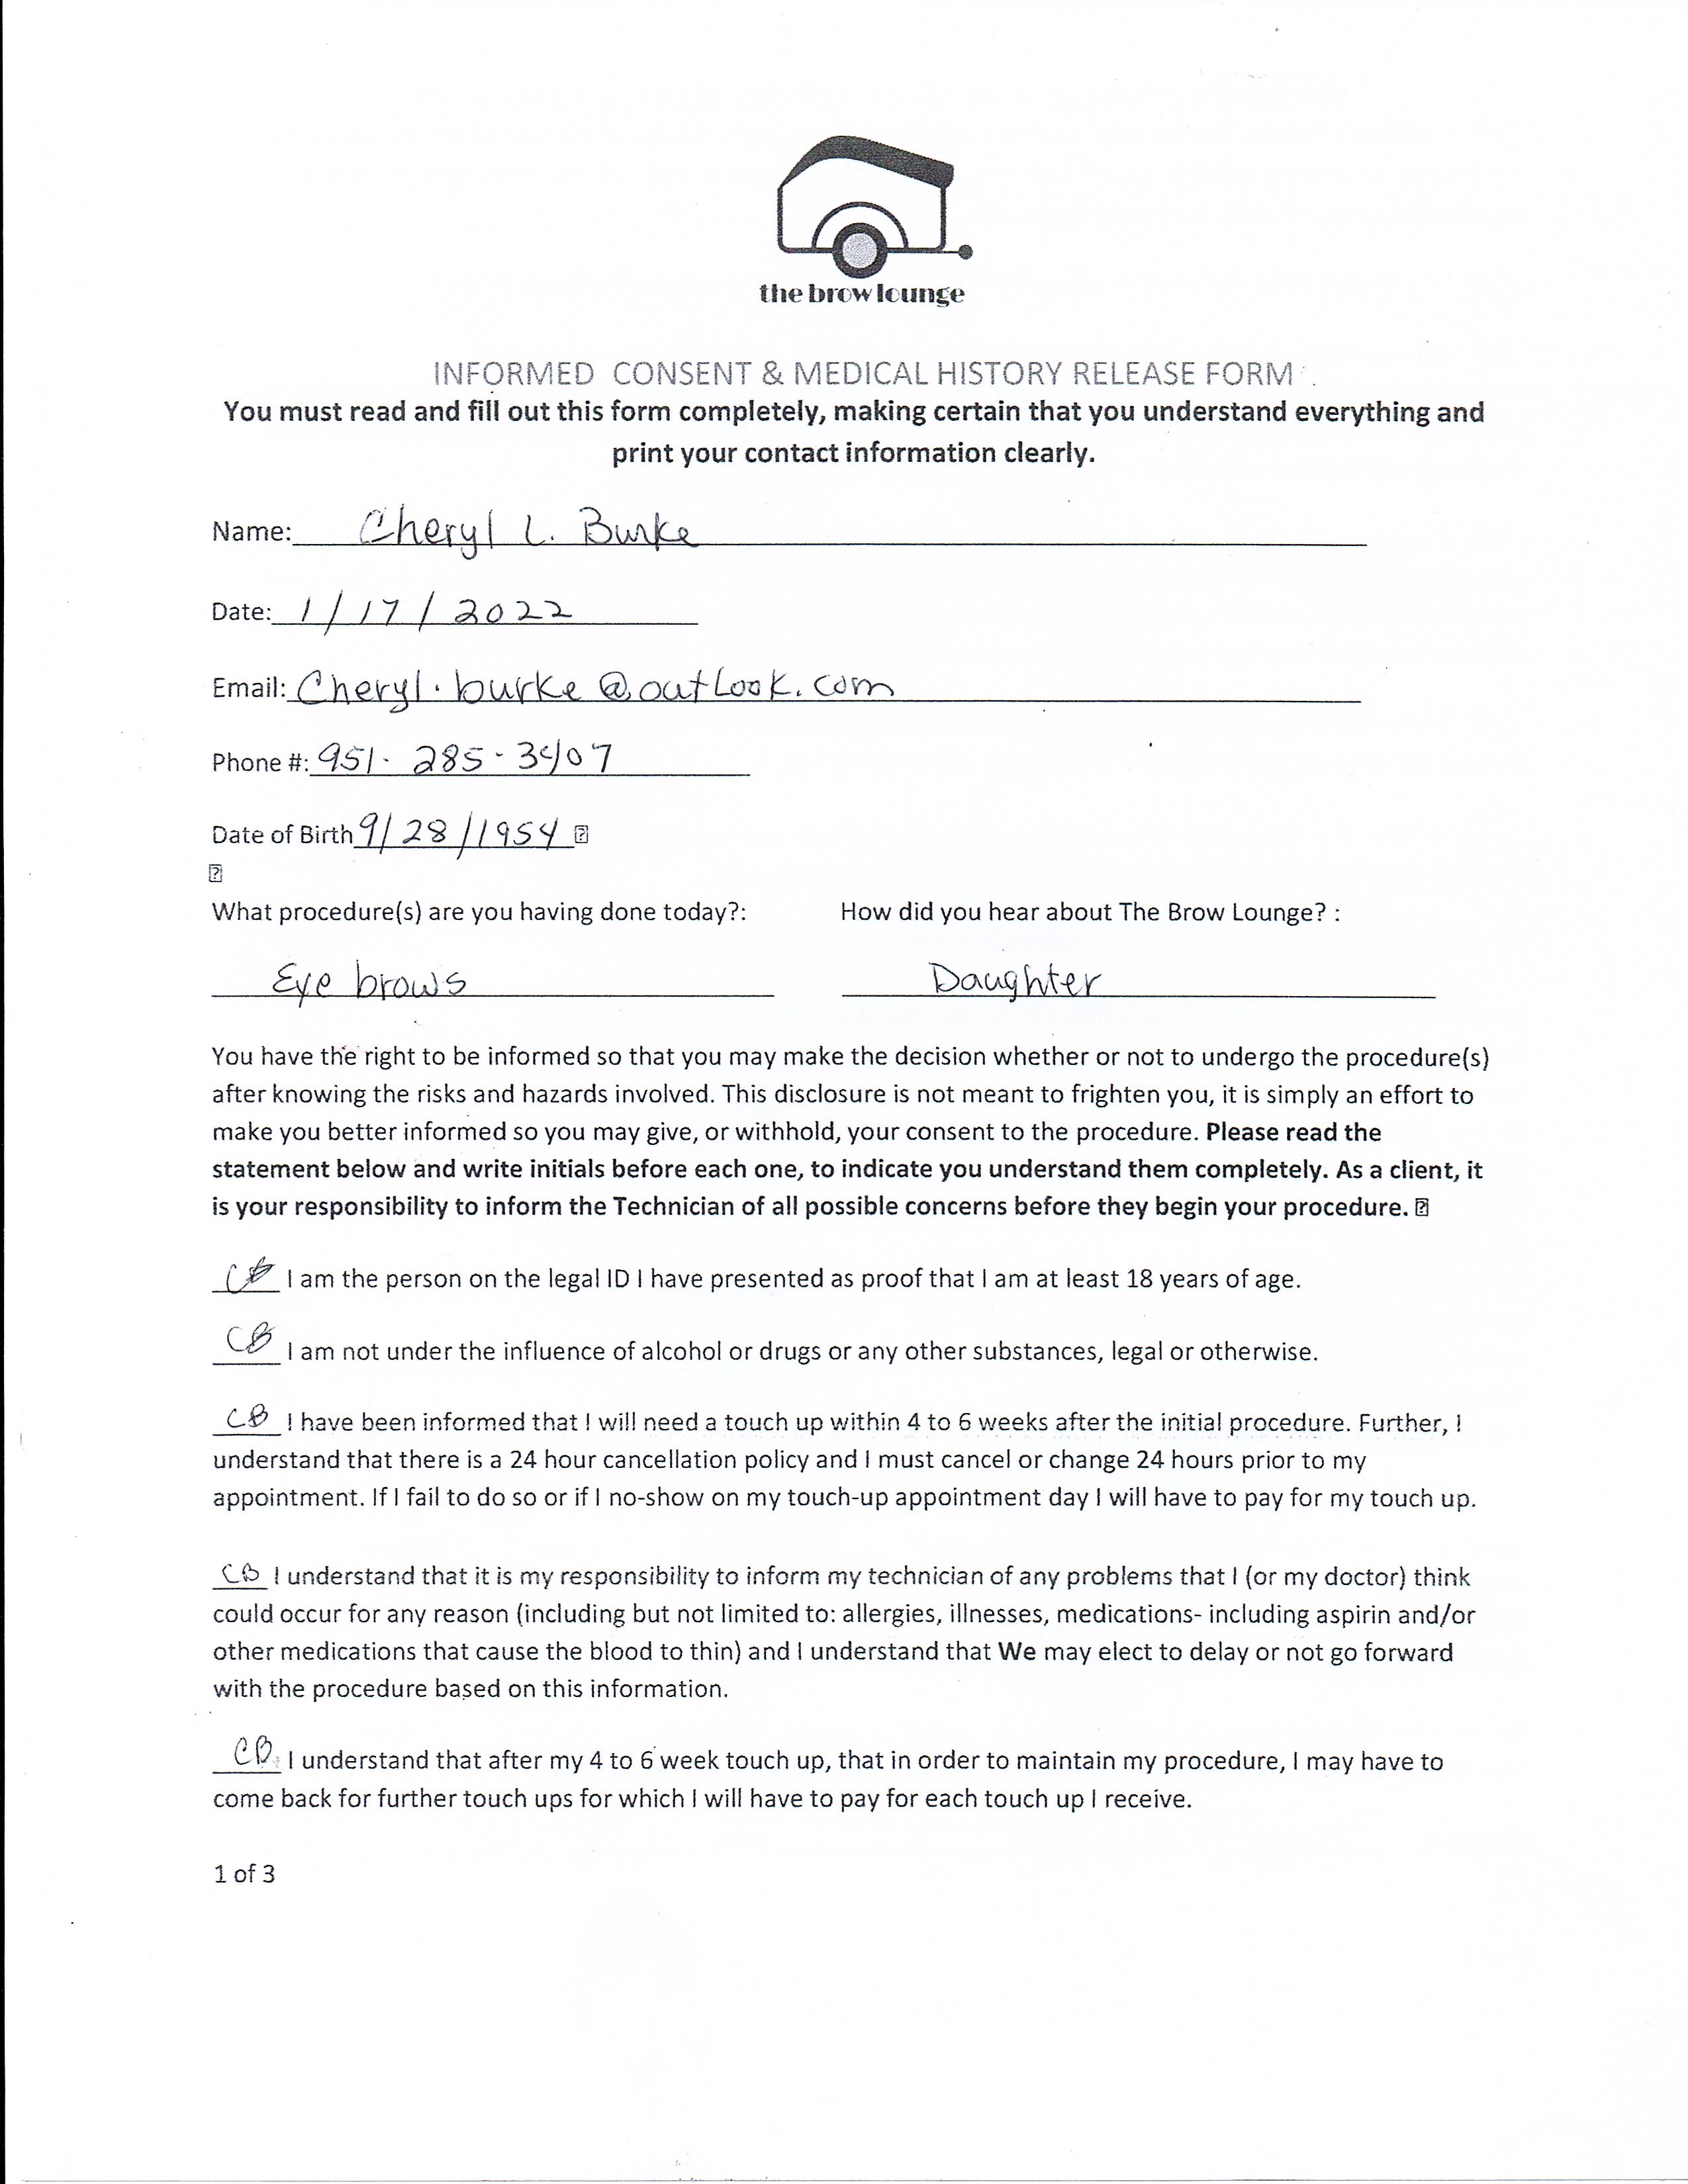 the brow lounge
INFORMED CONSENT & MEDICAL HISTORY RELEASE FORM
You must read and fill out this form completely, making certain that you understand everything and
print your contact information clearly.
Name: Cheryl L. Burke
Date: 1/17/2022
Email: Cheryl.burke@outlook.com
Phone #: 951-285-3407
Date of Birth 9/28/1954
What procedure(s) are you having done today?: How did you hear about The Brow Lounge? :
Eye brows Daughter
You have the right to be informed so that you may make the decision whether or not to undergo the procedure(s)
after knowing the risks and hazards involved. This disclosure is not meant to frighten you, it is simply an effort to
make you better informed so you may give, or withhold, your consent to the procedure. Please read the
statement below and write initials before each one, to indicate you understand them completely. As a client, it
is your responsibility to inform the Technician of all possible concerns before they begin your procedure.
CB I am the person on the legal ID I have presented as proof that I am at least 18 years of age.
CB I am not under the influence of alcohol or drugs or any other substances, legal or otherwise.
CB I have been informed that I will need a touch up within 4 to 6 weeks after the initial procedure. Further, I
understand that there is a 24 hour cancellation policy and I must cancel or change 24 hours prior to my
appointment. If I fail to do so or if I no-show on my touch-up appointment day I will have to pay for my touch up.
CB I understand that it is my responsibility to inform my technician of any problems that I (or my doctor) think
could occur for any reason (including but not limited to: allergies, illnesses, medications- including aspirin and/or
other medications that cause the blood to thin) and I understand that We may elect to delay or not go forward
with the procedure based on this information.
CB I understand that after my 4 to 6 week touch up, that in order to maintain my procedure, I may have to
come back for further touch ups for which I will have to pay for each touch up I receive.
1 of 3